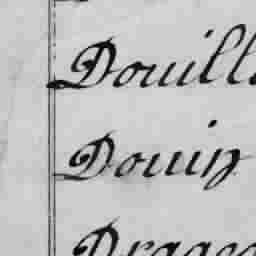 Douill
Douin
Dragee